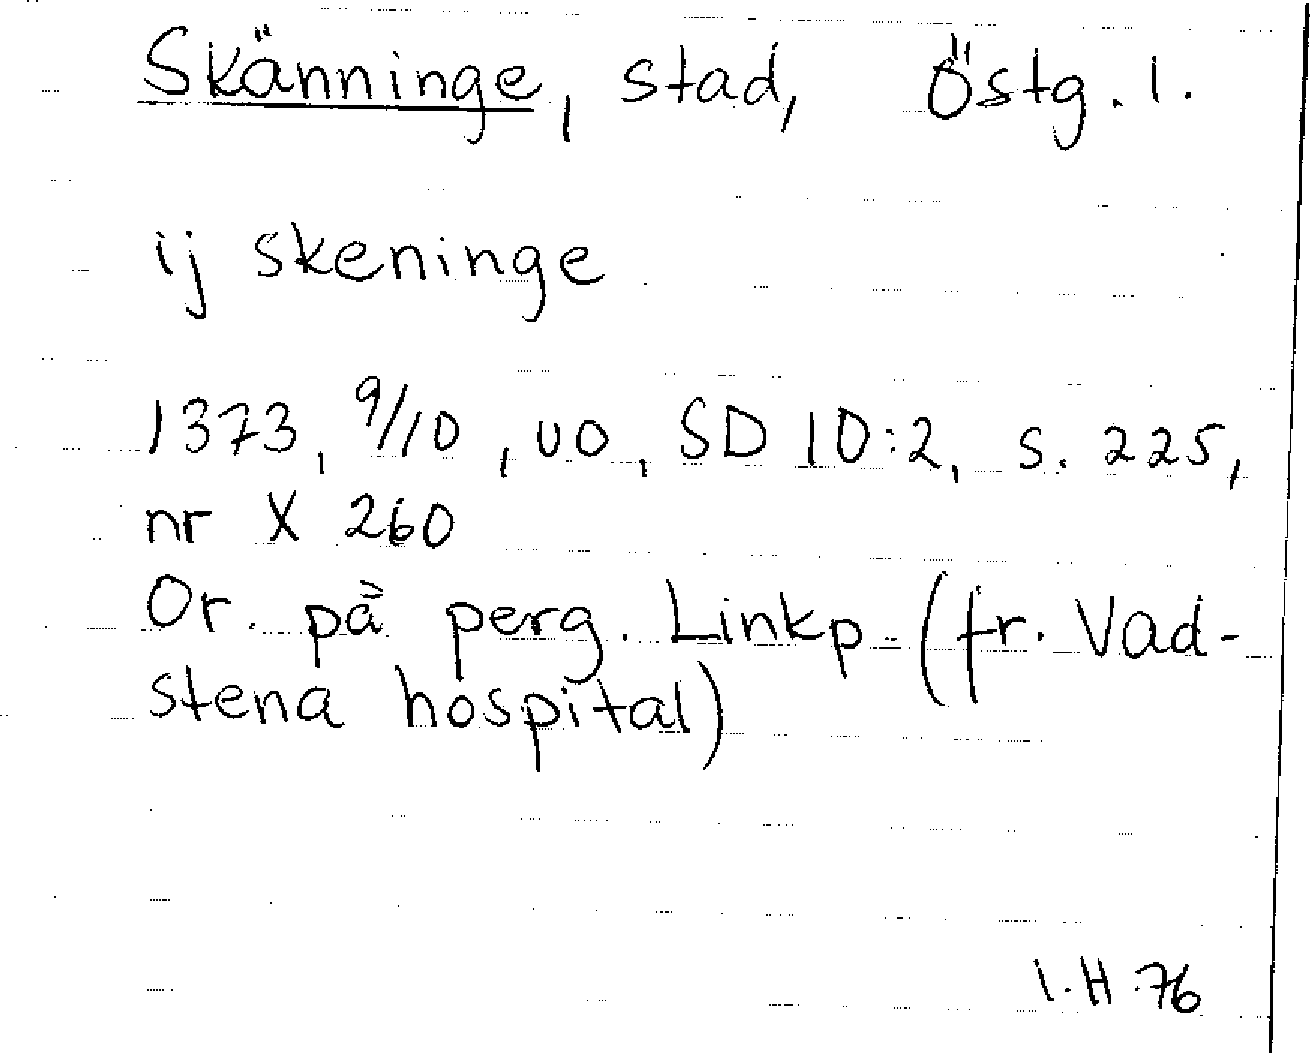 Skänninge, stad, Östg. l.
ij skeninge
1373, 9/10, uo, SD 10:2, s. 225,
nr X 260
Or. på perg. Linkp. (fr. Vad-
stena hospital)
I.H 76